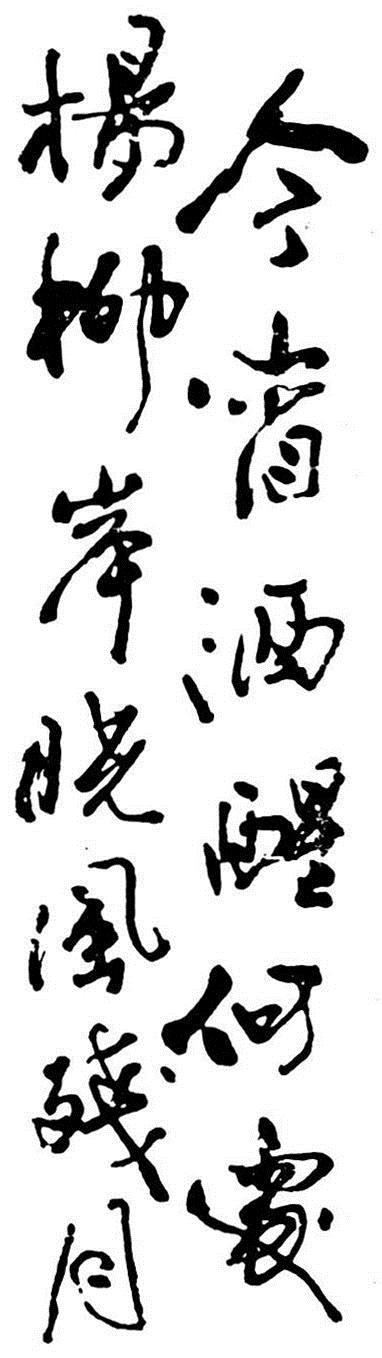 今宵酒醒何處
楊柳岸曉風殘月